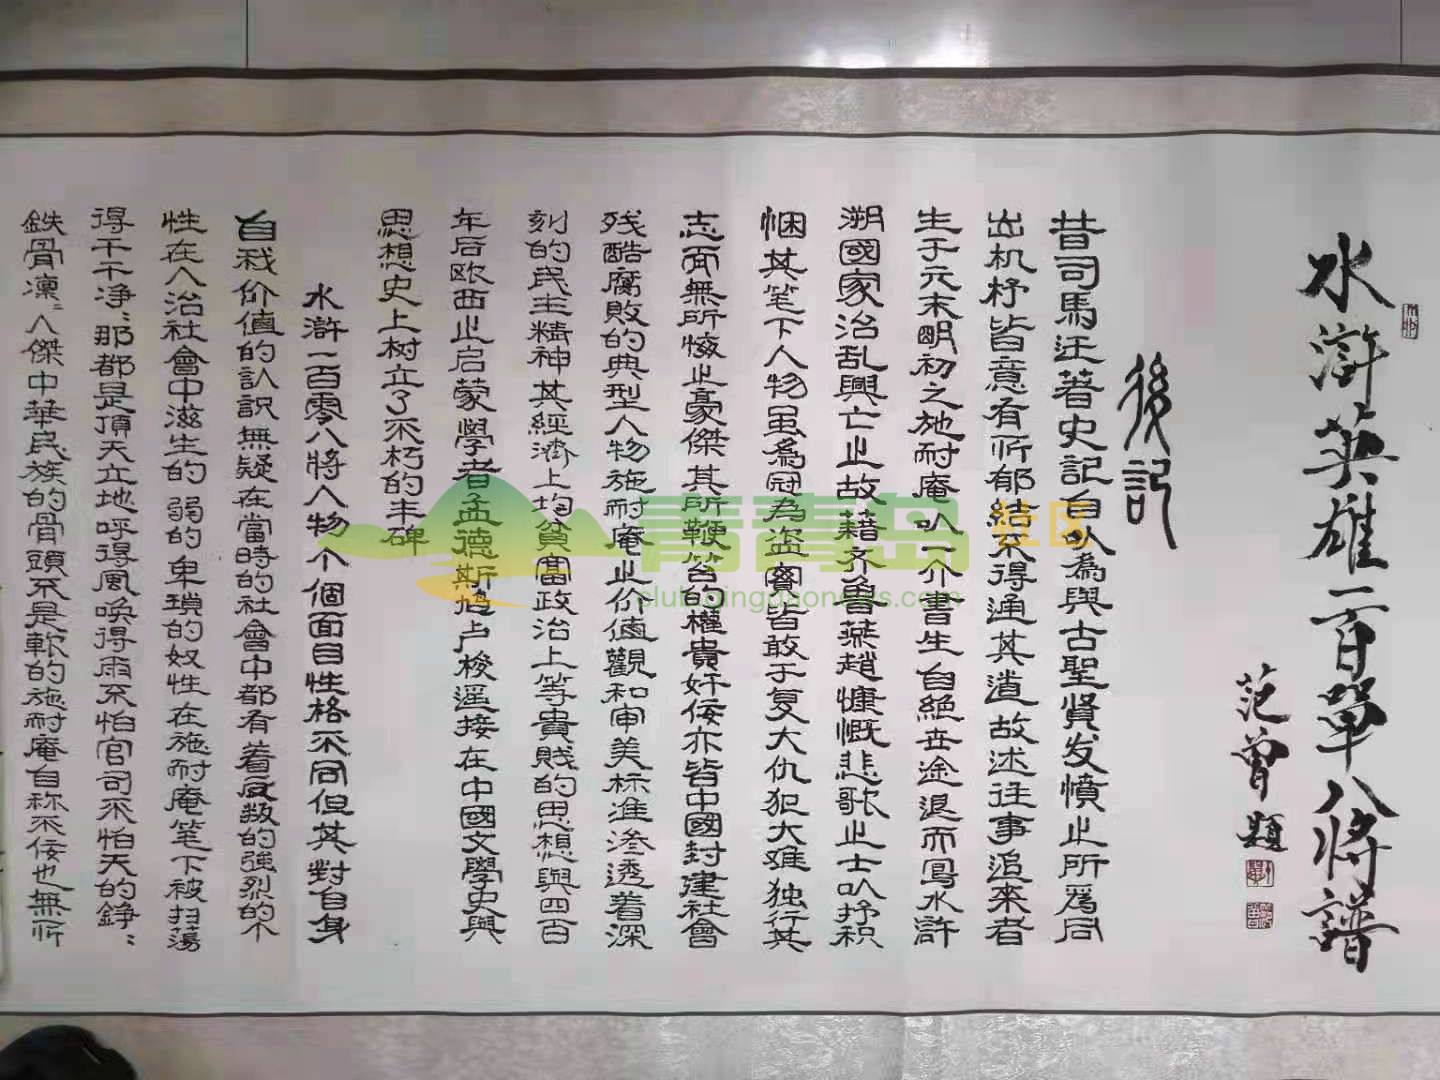 水滸英雄一百單八將譜
范曾題
後記
昔司馬迁著史記自以為與古聖賢发憤之所為同
出机杼皆意有所郁结不得通其道故述往事追来者
生于元末明初之施耐庵以一介書生自絕世途退而寫水滸
溯國家治乱興亡之故藉齐鲁燕趙慷慨悲歌之士以抒积
悃其笔下人物虽為冠為盗賓皆敢于复大仇犯大难独行其
志而無所悔之豪傑其所鞭笞的權貴奸佞亦皆中國封建社會
残酷腐败的典型人物施耐庵之价值觀和审美标准渗透着深
刻的民主精神其經濟上均貧富政治上等貴賤的思想與四百
年后欧西之启蒙學者孟德斯鸠卢梭遥接在中國文學史與
思想史上树立了不朽的丰碑
水滸一百零八將人物个個面目性格不同但其對自身
自我价值的认识無疑在當時的社會中都有着反叛的強烈的个
性在人治社會中滋生的弱的卑琐的奴性在施耐庵笔下被扫荡
得干干净净那都是頂天立地呼得風唤得雨不怕官司不怕天的錚錚
鉄骨凜凜人傑中華民族的骨頭不是軟的施耐庵自称不佞也無所
青青岛社区
club.qingdaonews.com